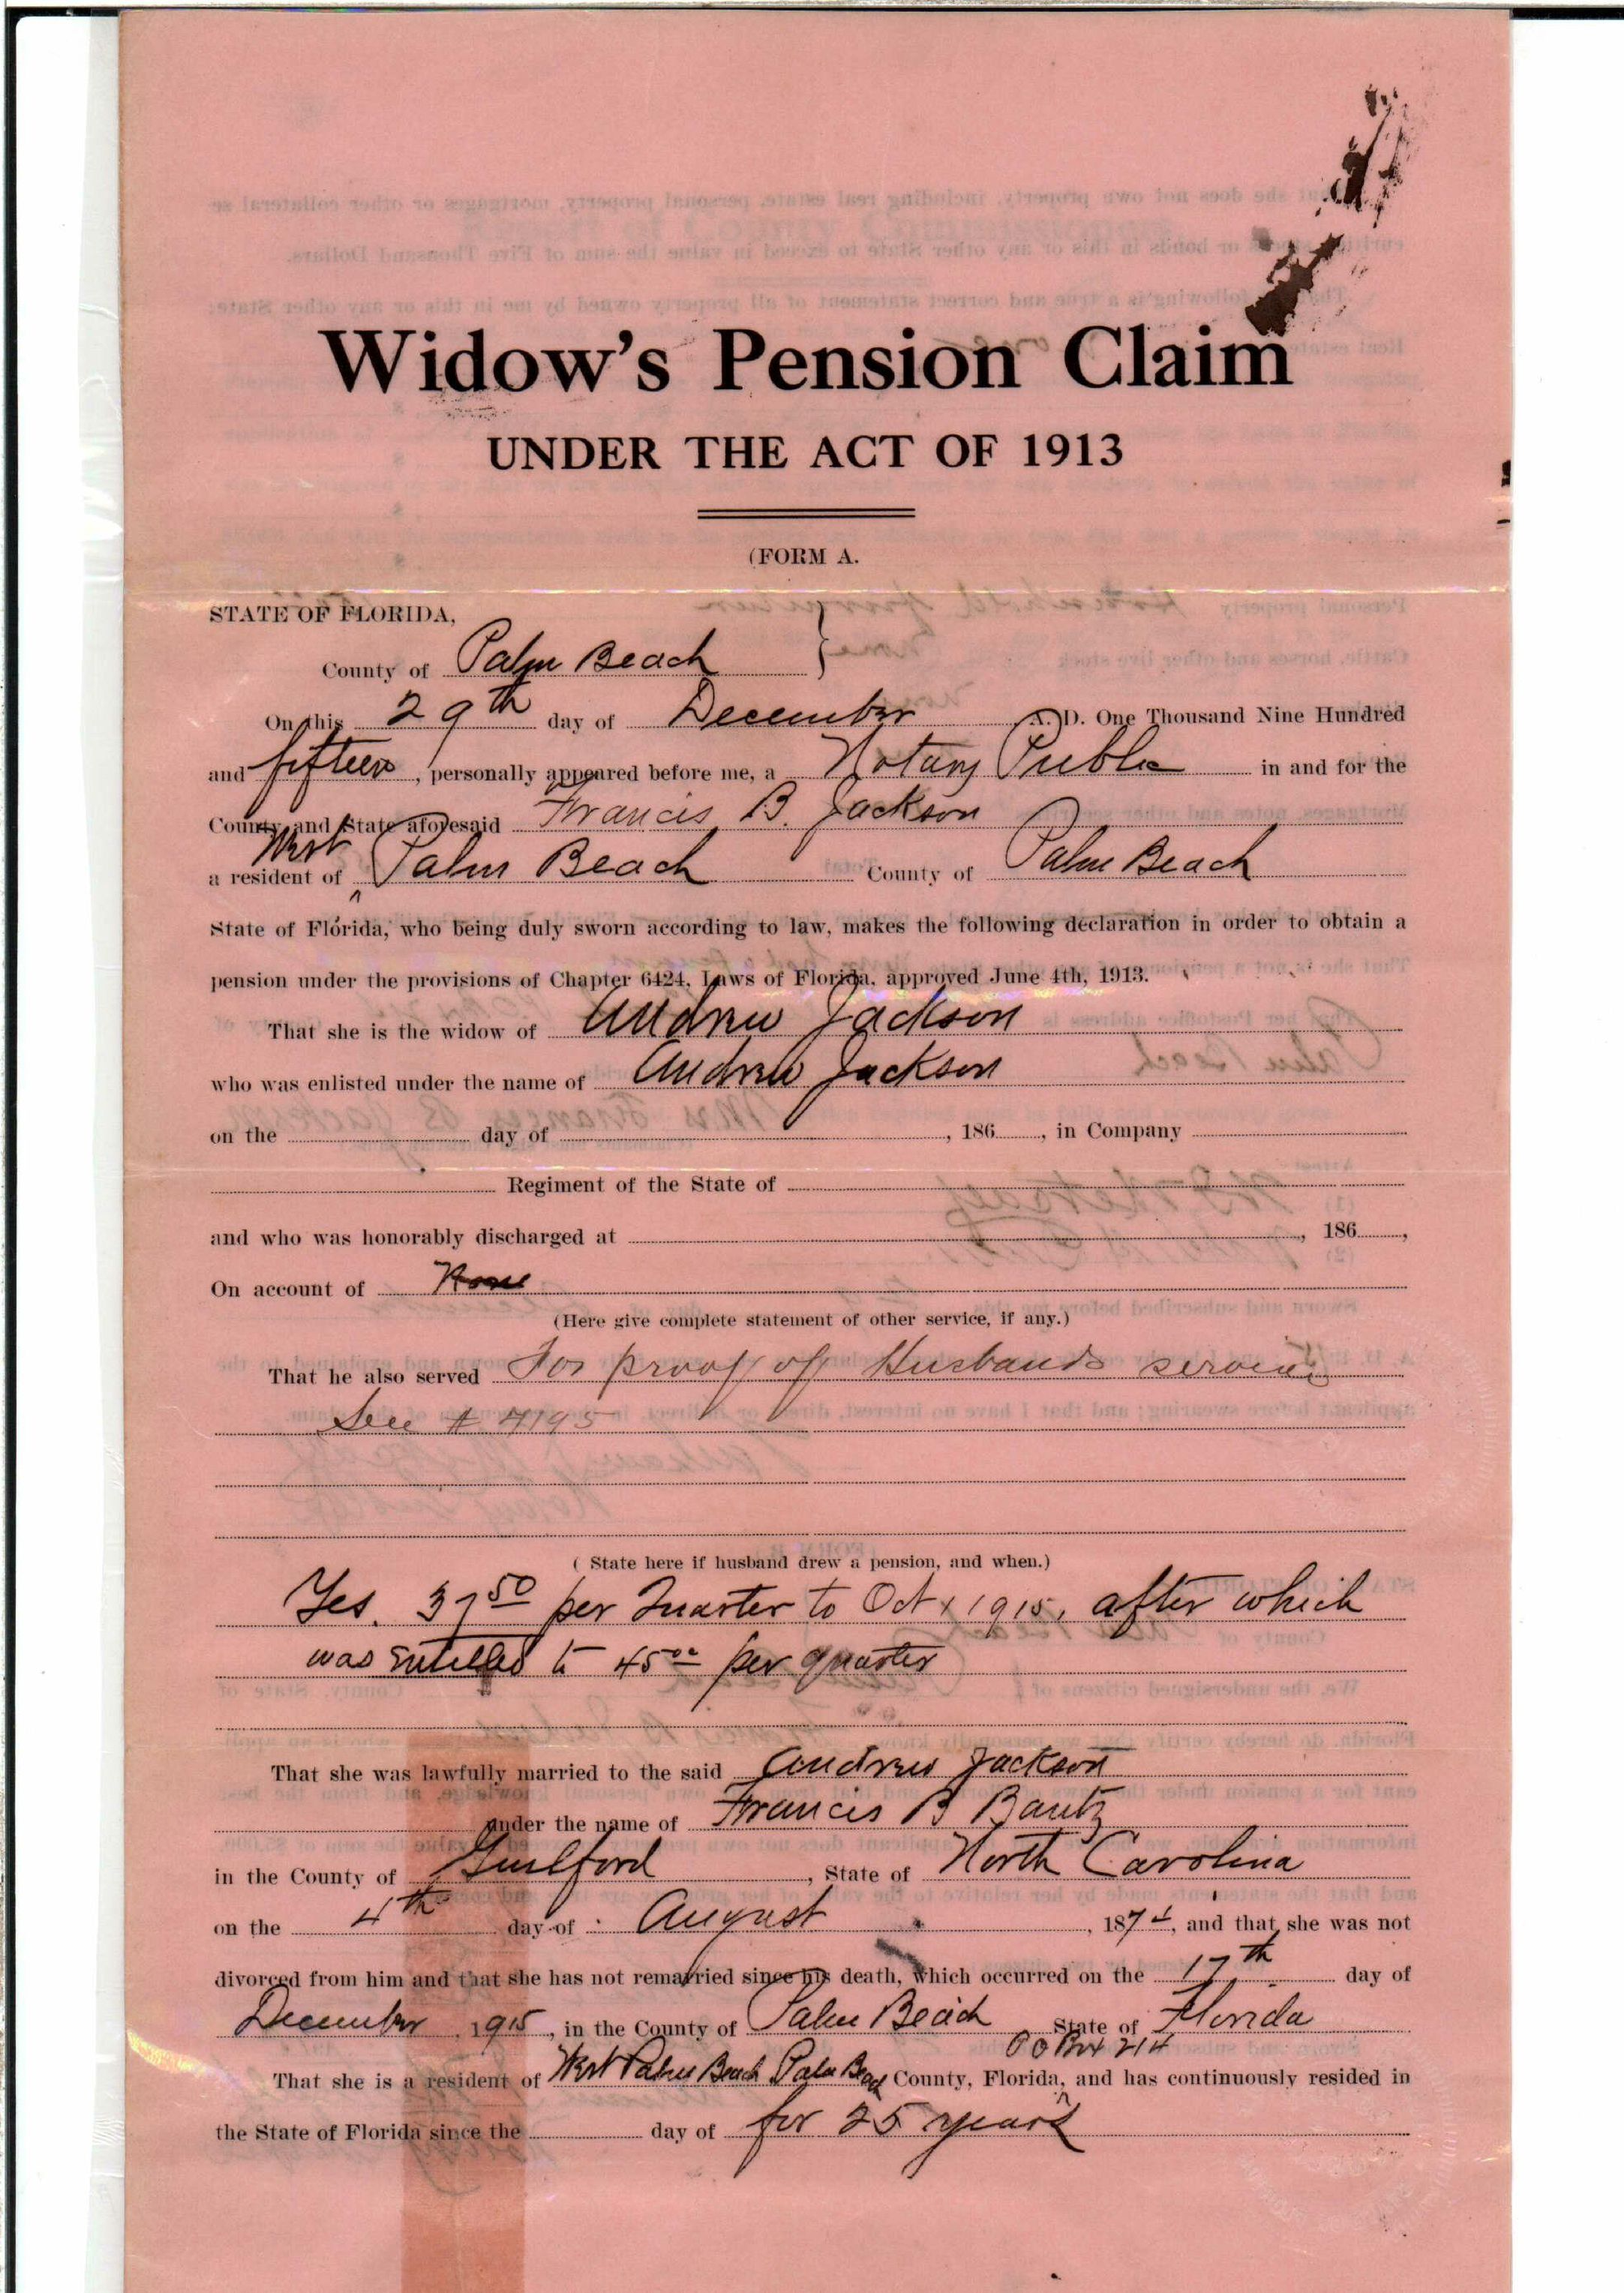 Widow's Pension Claim
UNDER THE ACT OF 1913
(FORM A.
STATE OF FLORIDA,
County of Palm Beach }
On this 29th day of December A. D. One Thousand Nine Hundred
and fifteen, personally appeared before me, a Notary Public in and for the
County and State aforesaid Francis B. Jackson
a resident of West Palm Beach County of Palm Beach
State of Florida, who being duly sworn according to law, makes the following declaration in order to obtain a
pension under the provisions of Chapter 6424, Laws of Florida, approved June 4th, 1913.
That she is the widow of Andrew Jackson
who was enlisted under the name of Andrew Jackson
on the day of , 186 , in Company
Regiment of the State of
and who was honorably discharged at , 186 ,
On account of None
(Here give complete statement of other service, if any.)
That he also served For proof of Husbands service
See # 4195
( State here if husband drew a pension, and when.)
Yes. 37 50 per Quarter to Oct 1 1915, after which
was entitled to 45 00 per quarter
That she was lawfully married to the said Andrew Jackson
under the name of Francis B Bantz
in the County of Guilford, State of North Carolina
on the 4th day of August, 1874, and that she was not
divorced from him and that she has not remarried since his death, which occurred on the 17th day of
December, 1915, in the County of Palm Beach State of Florida
P O Box 214
That she is a resident of West Palm Beach Palm Beach County, Florida, and has continuously resided in
the State of Florida since the day of for 25 years